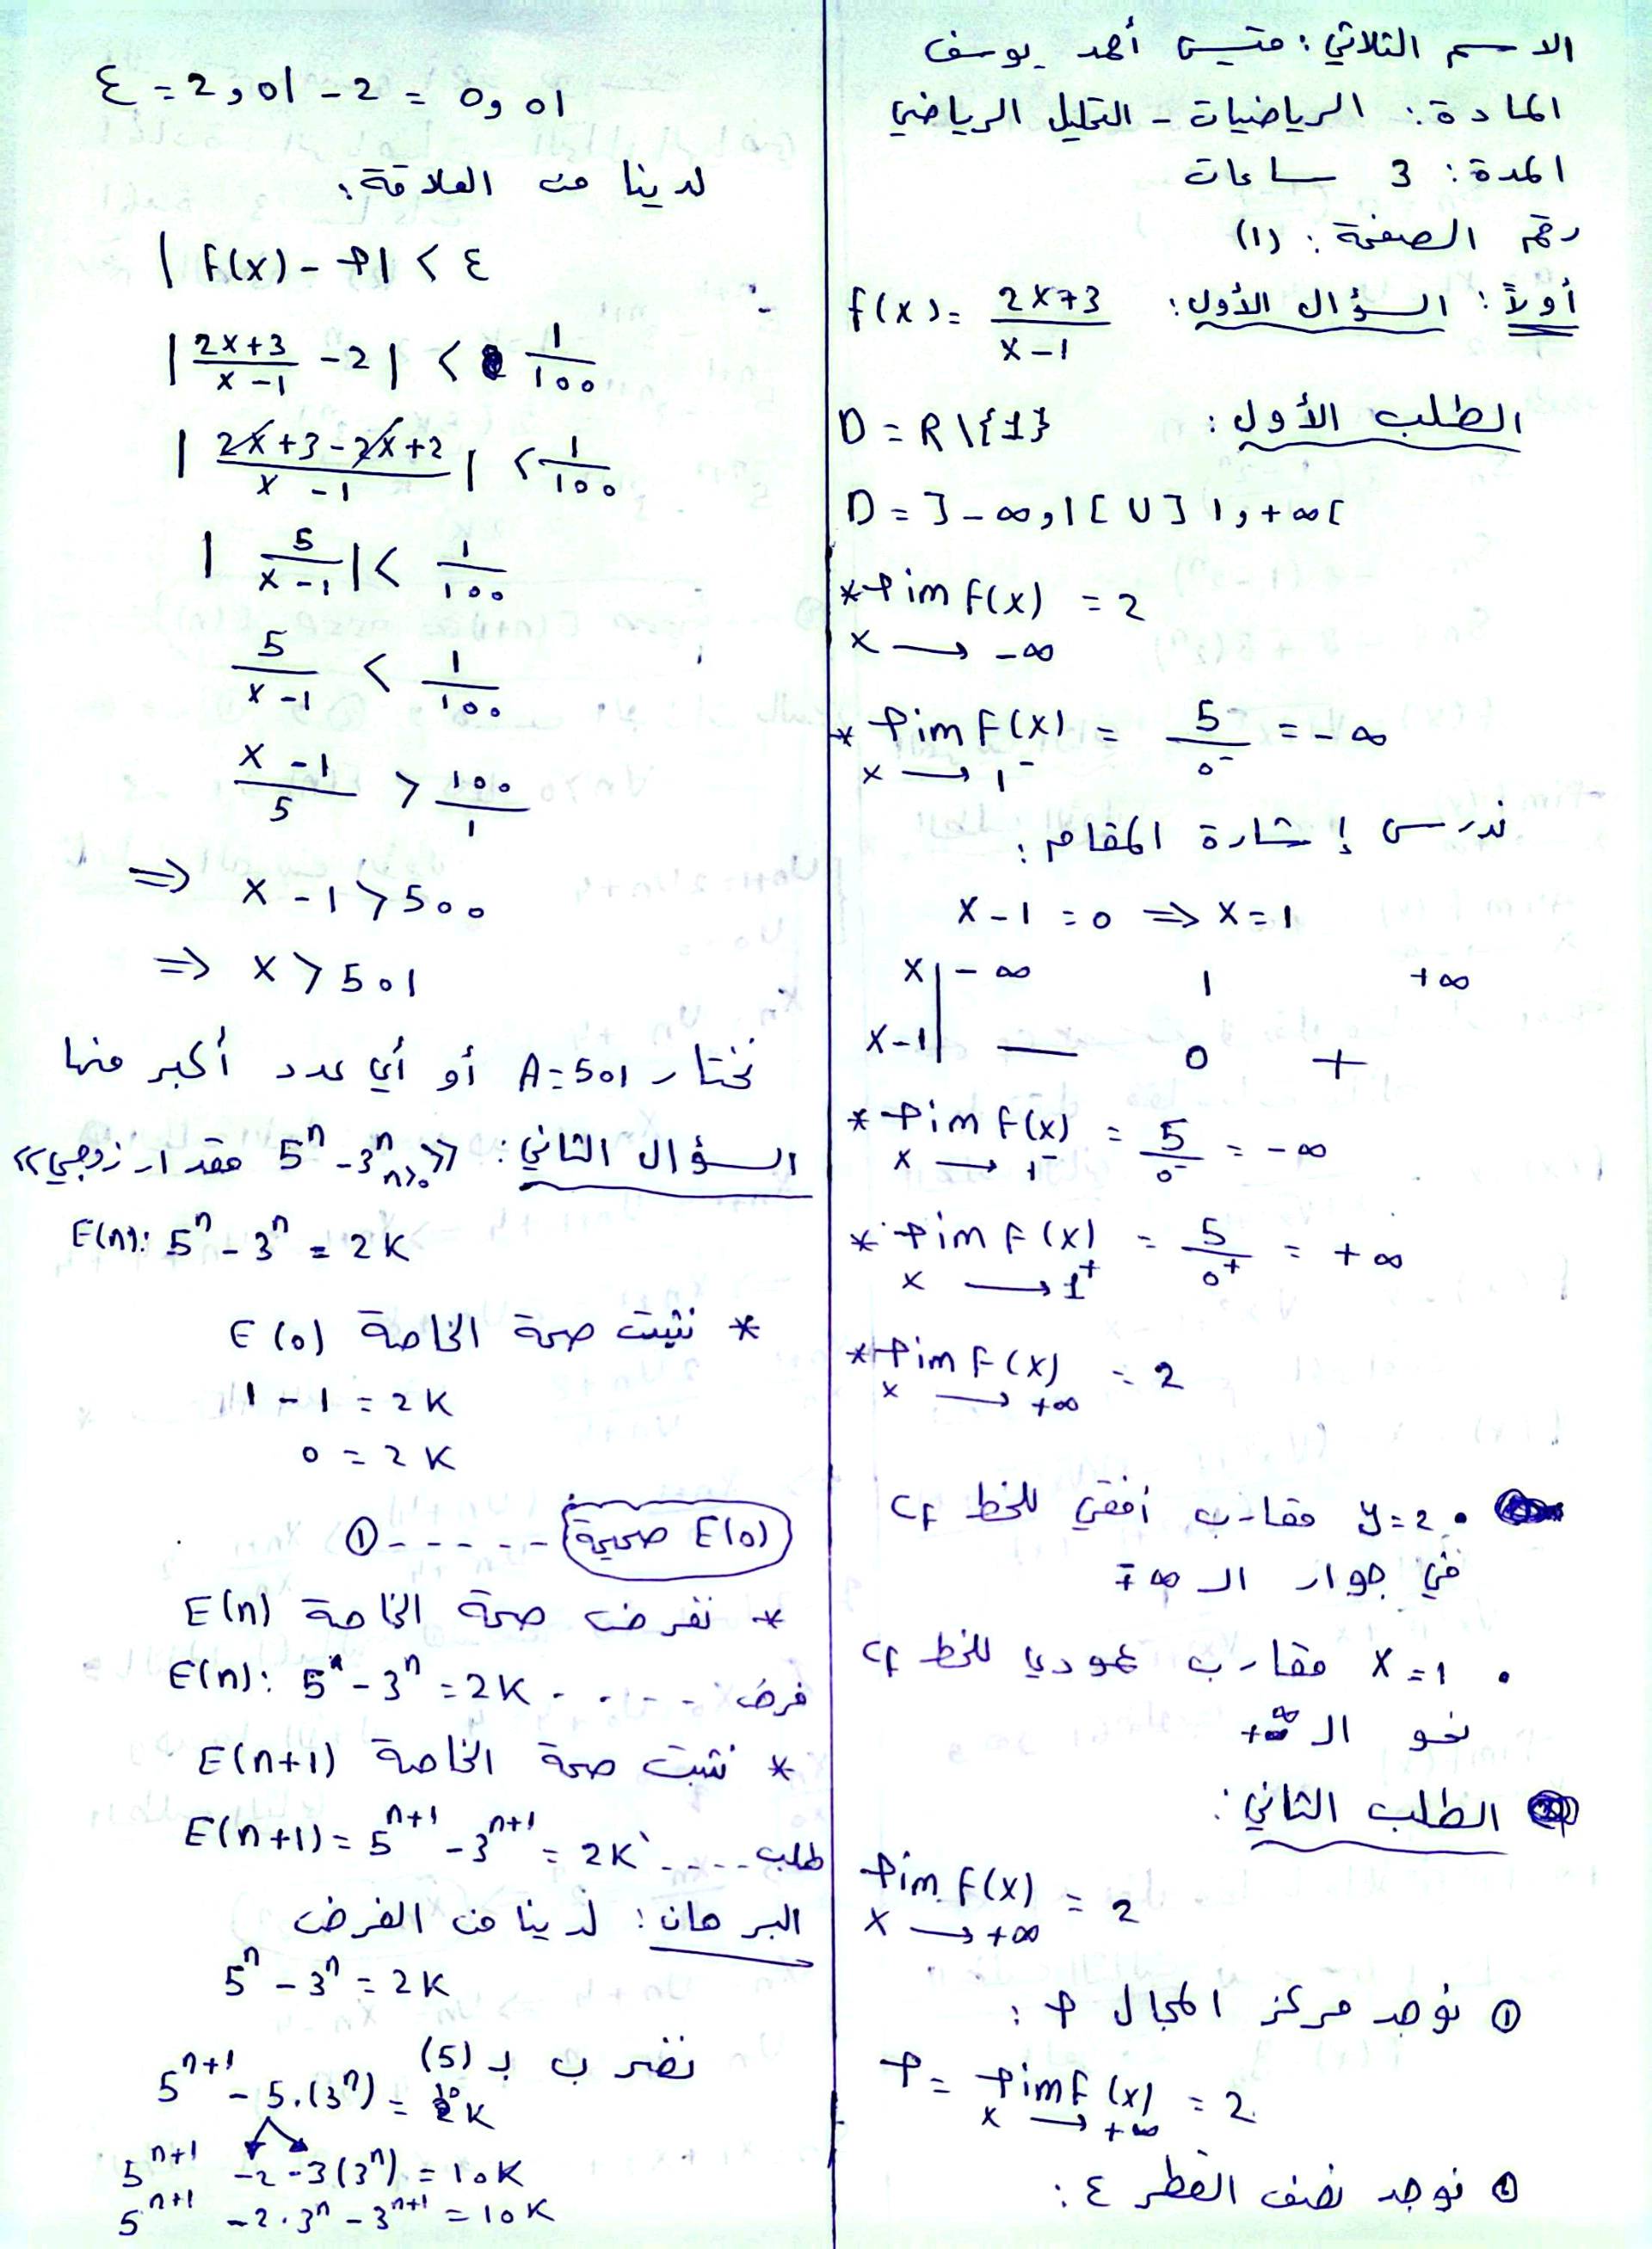 الاسم الثلاثي: متيس أحمد يوسف
المادة: الرياضيات - التحليل الرياضي
المدة: 3 ساعات
رقم الصفحة: (1)
أولاً: السؤال الأول: f(x) = \frac{2x+3}{x-1}
الطلب الأول: D = R\{1}
D = ]-∞,1[ U ]1,+∞[
* lim f(x) = 2
x → -∞
* lim f(x) = \frac{5}{0^-} = -∞
x → 1^-
ندرس إشارة المقام:
x - 1 = 0 ⇒ x = 1
x | -∞ 1 +∞
x-1 | — 0 +
* lim f(x) = \frac{5}{0^-} = -∞
x → 1^-
* lim f(x) = \frac{5}{0^+} = +∞
x → 1^+
* lim f(x) = 2
x → +∞
• y=2 مقارب أفقي للخط Cf
في جوار الـ ∓∞
• x=1 مقارب عمودي للخط Cf
نحو الـ +∞
الطلب الثاني:
lim f(x) = 2
x → +∞
① نوجد مركز المجال ℓ:
ℓ = lim f(x) = 2
x → +∞
② نوجد نصف القطر ε:
ε = 2,01 - 2 = 0,01
لدينا من العلاقة:
|f(x) - ℓ| < ε
|\frac{2x+3}{x-1} - 2| < \frac{1}{100}
|\frac{2x+3-2x+2}{x-1}| < \frac{1}{100}
|\frac{5}{x-1}| < \frac{1}{100}
\frac{5}{x-1} < \frac{1}{100}
\frac{x-1}{5} > \frac{100}{1}
⇒ x - 1 > 500
⇒ x > 501
نختار A=501 أو أي عدد أكبر منها
السؤال الثاني: «5^n - 3^n n≥0 مقدار زوجي»
E(n): 5^n - 3^n = 2K
* نثبت صحة الخاصة E(0)
1 - 1 = 2K
0 = 2K
E(0) صحيحة - - - - - ①
* نفرض صحة الخاصة E(n)
E(n): 5^n - 3^n = 2K - - - - - فرض
* نثبت صحة الخاصة E(n+1)
E(n+1) = 5^{n+1} - 3^{n+1} = 2K` - - - - طلب
البرهان: لدينا من الفرض
5^n - 3^n = 2K
نضرب بـ (5)
5^{n+1} - 5.(3^n) = 10K
5^{n+1} -2 -3(3^n) = 10K
5^{n+1} -2.3^n - 3^{n+1} = 10K